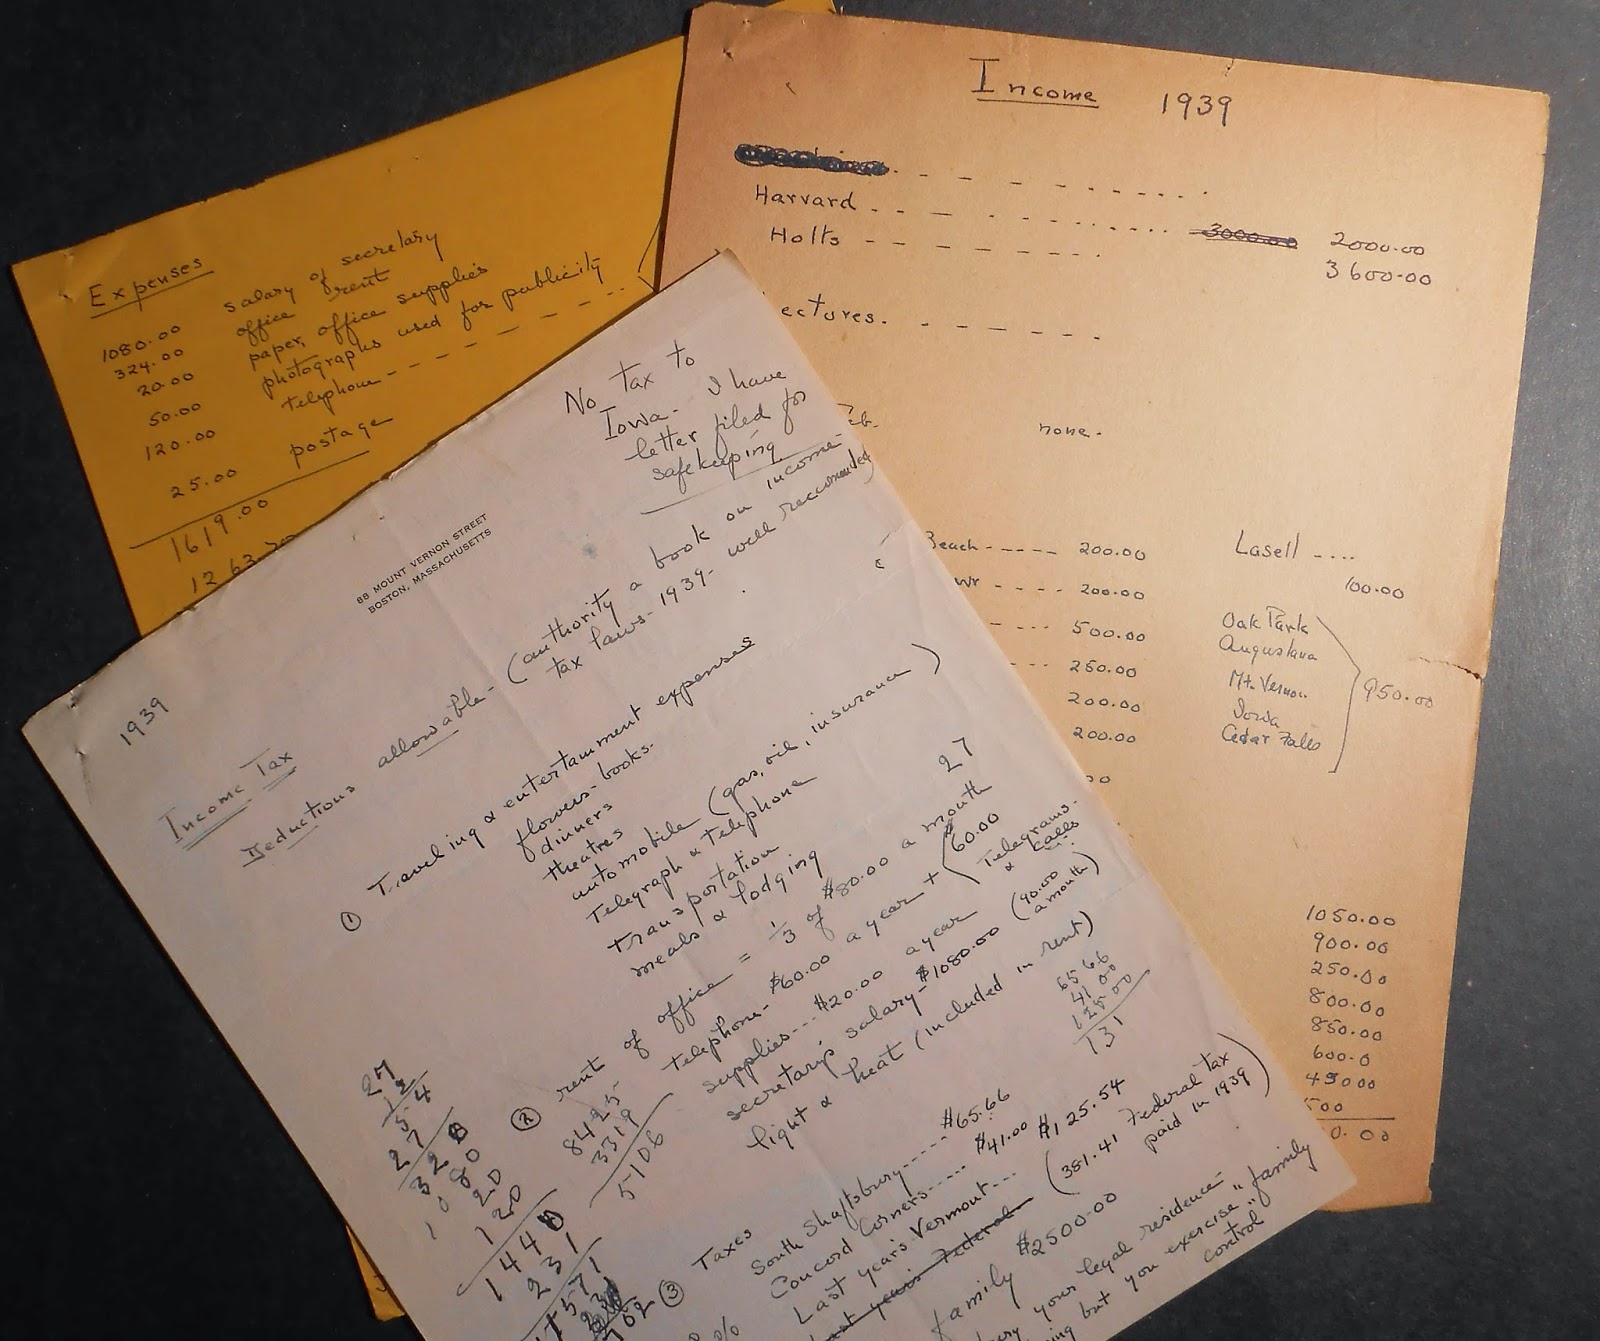 Expenses
1080.00 salary of secretary
324.00 office rent
20.00 paper, office supplies
50.00 photographs used for publicity
120.00 telephone - - - - - - - - -
25.00 postage
1619.00
1263.
Income 1939
Harvard - - - - - - - - - 3000.00 2000.00
Holts - - - - - - - 3600.00
ectures. - - - - - -
eb. none.
Beach - - - - - 200.00 Lasell ....
100.00
wr - - - - 200.00
500.00 Oak Park
Augustana
250.00 Mt. Vernon 950.00
200.00 Iowa
200.00 Cedar Falls
1050.00
900.00
250.00
800.00
850.00
600.0
450.00
500
0.00
No tax to
Iowa - I have
letter filed for
safekeeping
88 MOUNT VERNON STREET
BOSTON, MASSACHUSETTS
1939
Income Tax
Deductions allowable - (authority a book on income
tax laws - 1939 - well reccomended)
① Traveling & entertainment expenses
flowers - books.
dinners
theatres
automobile (gas, oil, insurance)
Telegraph & telephone
transportation
meals & lodging
② rent of office = 1/3 of $80.00 a month 27
telephone - $60.00 a year + ($60.00 Telegrams & calls)
supplies --- $20.00 a year
secretary's salary - $1080.00 (90.00 a month)
light & heat (included in rent)
65 66
41 00
125.00
131
27
12
54
27
1080
20
120
8425
3319
5106
③ Taxes
South Shaftsbury ----- $65.66
Concord Corners ---- $41.00
Last year's Vermont --- $125.54
Last year's Federal (381.41 Federal tax paid in 1939)
family $2500.00
your legal residence -
but you exercise "family
control"